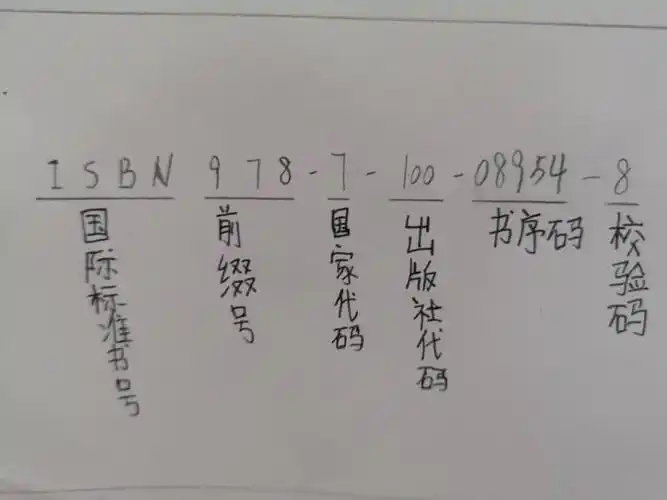 ISBN 978-7-100-08954-8
国际标准书号
前缀号
国家代码
出版社代码
书序码
校验码